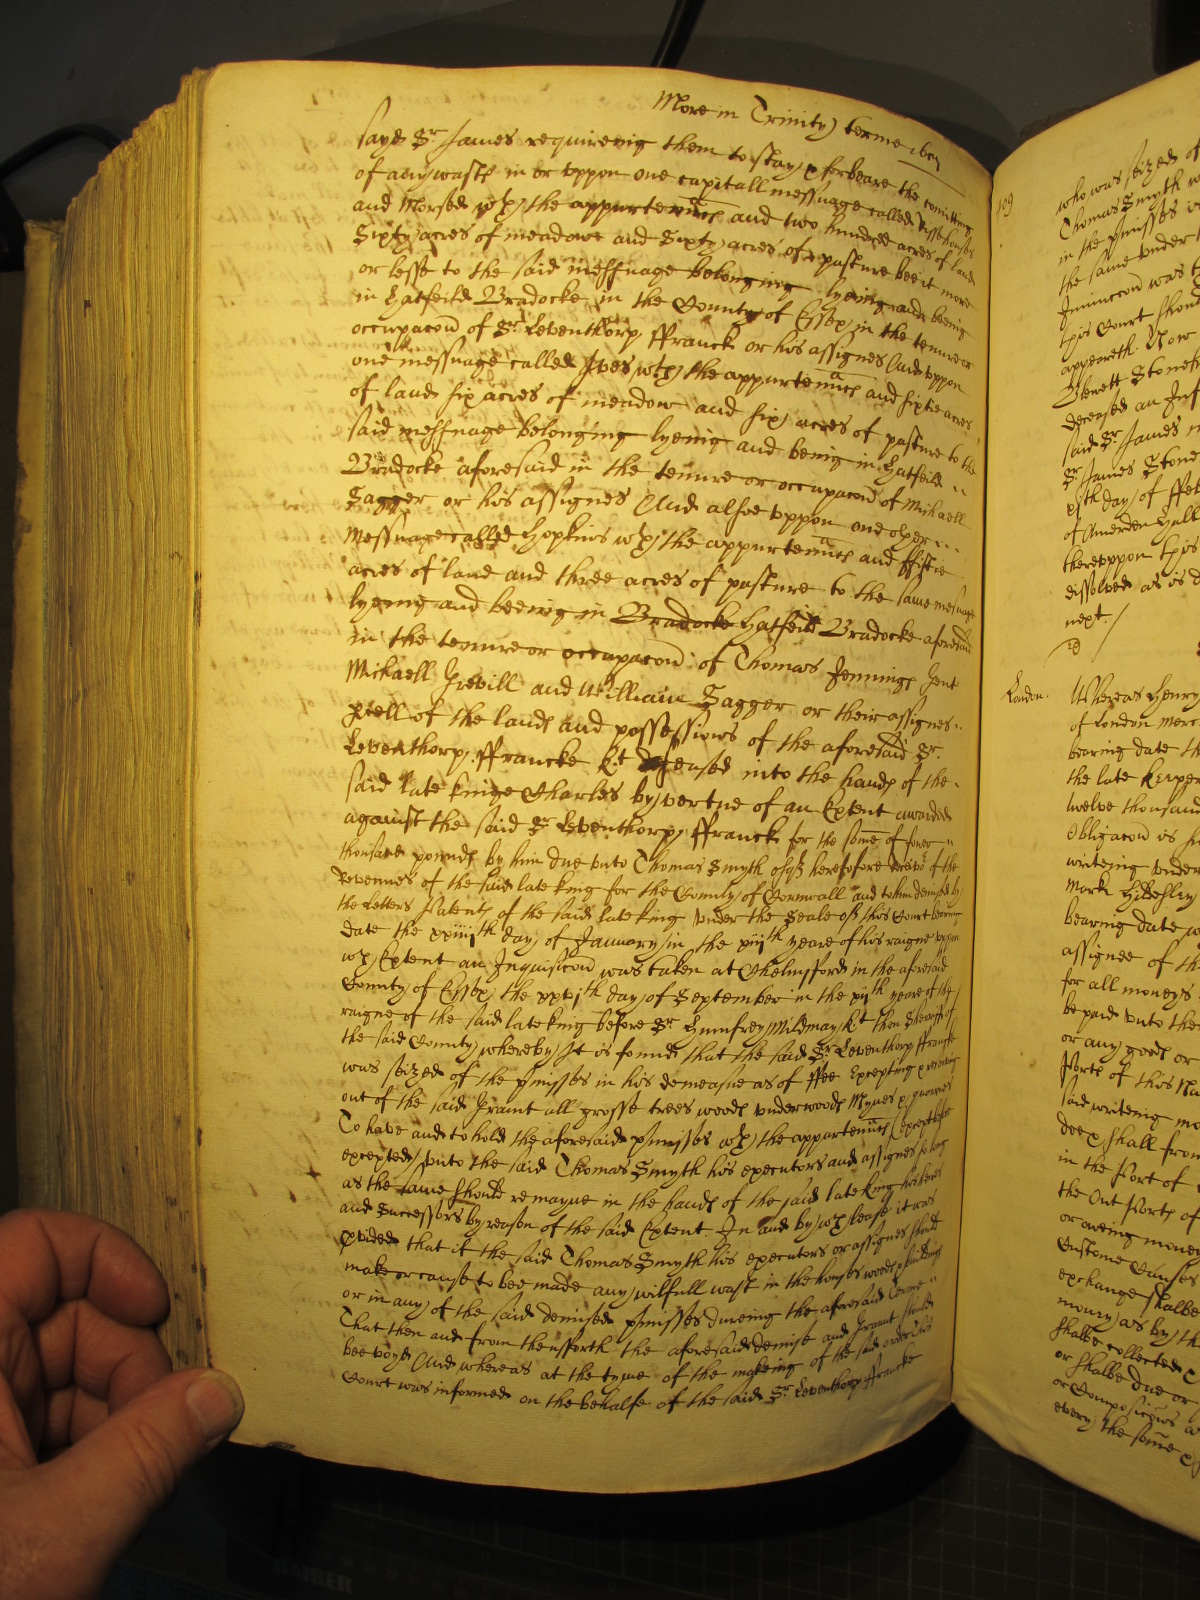 More in Trinity terme 1651
sayd Sr James requireing them to stay & forbeare the comitting
of any waste in or vppon one capitall messuage called
and Morsed wch the appurtennces and two hundred acres of land
Sixty acres of meadowe and Sixty acres of pasture bee it more
or lesse to the said messuage belonging lyeing and beeing
in Hatfeild Bradocke in the County of Essex in the tenure or
occupacon of Sr Leventhorp ffranck or his assignes And vppon
one messuage called Ives wth the appurtennces and sixtie acres
of land six acres of meadow and six acres of pasture to the
said messuage belonging lyeing and being in Hatfeild
Bradocke aforesaid in the tenure or occupacon of Michaell
Sagger or his assignes And alsoe vppon one other
Messuage called Hopkins wth the appurtennces and ffiftie
acres of land and three acres of pasture to the same messuage
lyeing and beeing in Bradocke Hatfeild Bradocke aforesaid
in the tenure or occupacon of Thomas Jennings Gent
Michaell Grevill and William Sagger or their assignes
pcell of the lands and possessions of the aforesaid Sr
Leventhorp ffrancke Kt deceased into the hands of the
said late kinge Charles by vertue of an Extent awarded
against the said Sr Leventhorp ffranck for the some of fower
thousand pounds by him due vnto Thomas Smyth esqr heretofore of the
Revenues of the said late king for the County of Cornwall and to him demised by
the Letters Patents of the said late king vnder the Seale of this Court bearing
date the xxiiijth day of January in the xiijth yeare of his raigne vppon
wch Extent an Inquisicon was taken at Chelmsford in the aforesaid
County of Essex the xxvjth day of September in the xijth yeare of the
raigne of the said late king before Sr Humfrey Mildmay Kt then Sheriffe of
the said County whereby It is found that the said Sr Leventhorp ffranck
was seized of the pmisses in his demeasne as of ffee Excepting & reserving
out of the said Graunt all grosse trees woods vnderwoods Mynes & quarries
To have and to hold the aforesaid pmisses wth the appurtennces (except before
excepted) vnto the said Thomas Smyth his executors and assignes so long
as the same should remayne in the hands of the said late king his heires
and Successors by reason of the said Extent. In and by wch lease it was
pvided that if the said Thomas Smyth his executors or assignes should
make or cause to bee made any wilfull wast in the houses woods & buildings
or in any of the said demised pmisses dureing the aforesaid terme
That then and from thensforth the aforesaid demise and Graunt should
bee voyd And whereas at the tyme of the makeing of the said order this
Court was informed on the behalfe of the said Sr Leventhorp ffrancke
109
who was seized of
Thomas Smyth
in the pmisses
the same vnder
Iniunccon was
this Court should
appeareth. Now
deceased an Inf
said Sr James
Sr James Stone
day of ffe
of Hall
therevppon this
dissolved as is
next.
London.
Whereas Henry
of London merc
bearing date th
the late
twelve thousand
Obligacon is
writeing vnder
Mark Hildesley
bearing date
assignee of th
for all moneys
be paid vnto the
or any goods or
Ports of this Na
said writeing mo
doe & shall from
in the Port of
the Out Ports of
or oweing money
Custome Causes
exchange shalbe
money as by th
shalbe collected
or shalbe due or
or Composicons
every the some